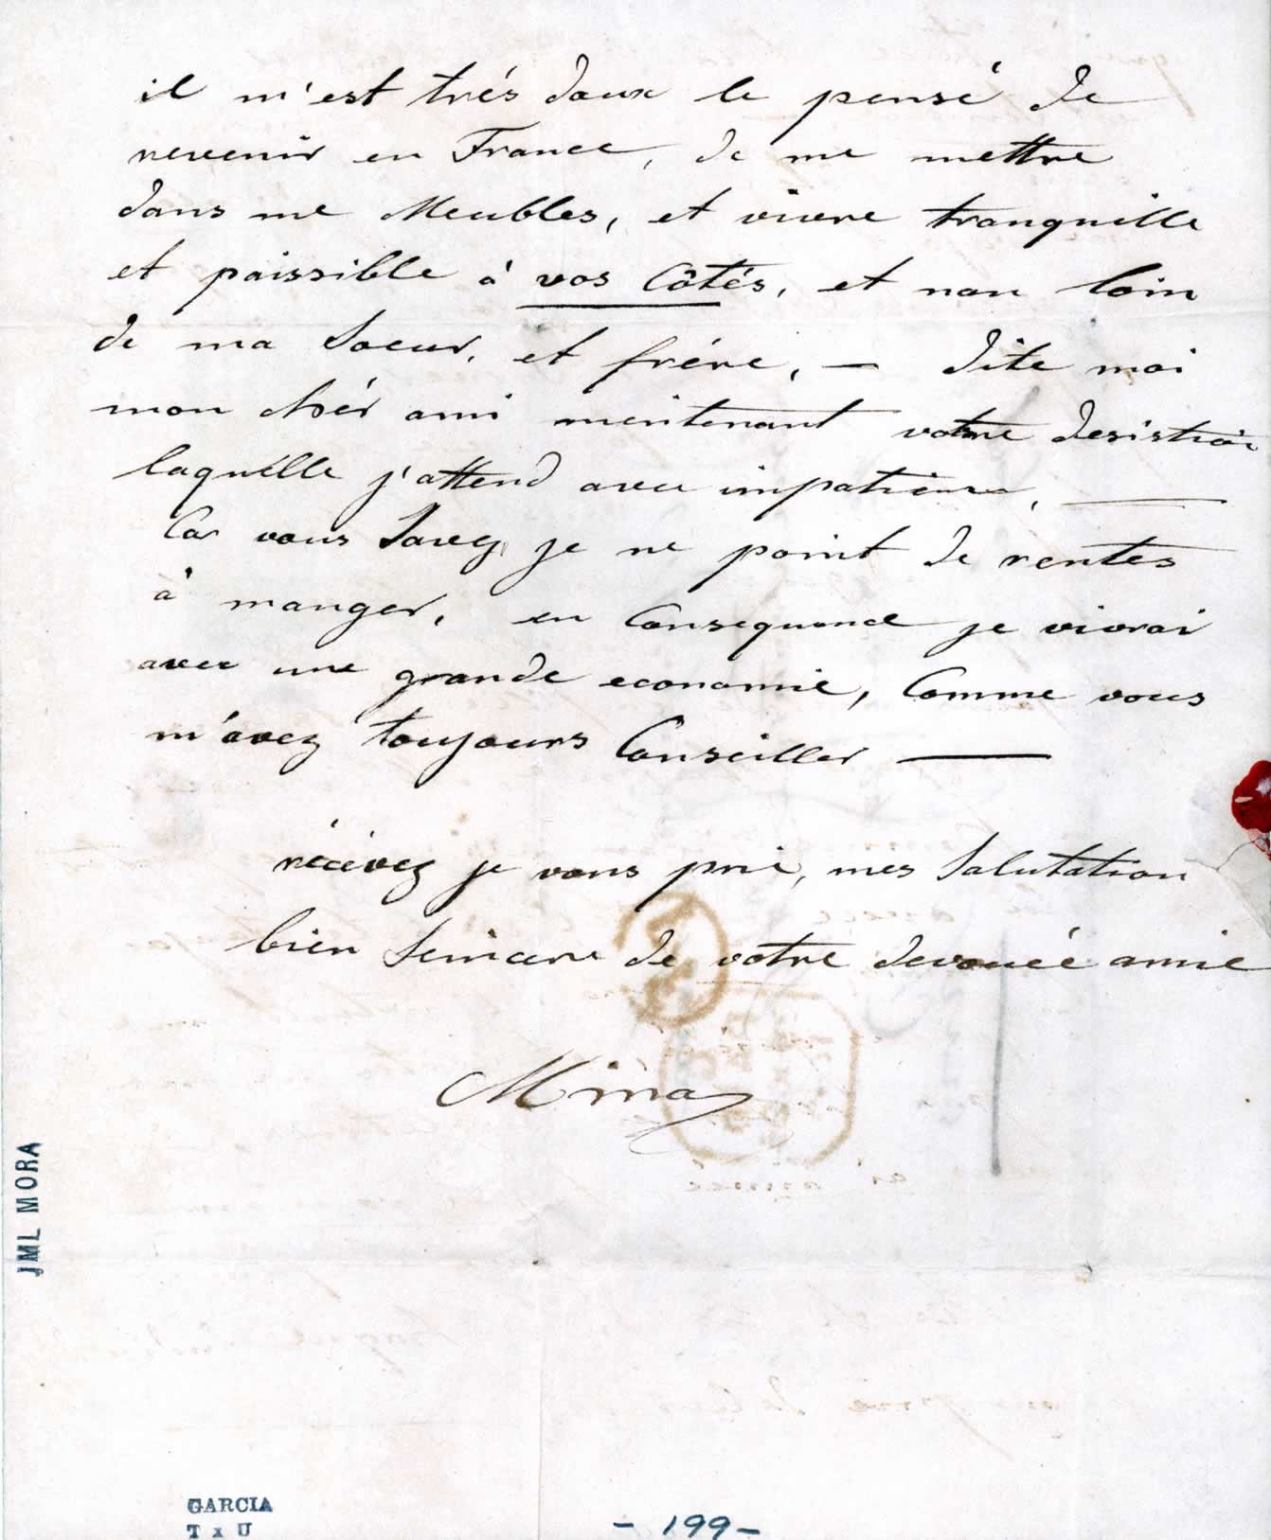 il m'est trés doux le pensé de
revenir en France, de me mettre
dans me Meubles, et vivre tranquille
et paissible à vos Côtés, et non loin
de ma Soeur, et frére, — dite moi
mon chér ami meintenant votre
laquélle j'attend avec impatience, —
Car vous Savez je ne point de rentes
à manger, en Consequence je vivrai
avec une grande economie, Comme vous
m'avez toujours Conseiller —
récévez je vous prie, mes Salutation
bien Seincere de votre devouée amie
Mina
JML MORA
GARCIA
T x U
- 199 -